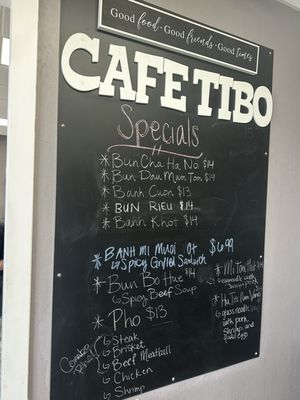 Good food · Good friends · Good times
CAFE TIBO
Specials
* Bun Cha Ha Noi $14
* Bun Dau Mam Tom $14
* Banh Cuon $13
* BUN RIEU $14
* Banh Khot $14
* BANH MI Muoi Ot $6.99
↳ Spicy Grilled Sandwich
* Bun Bo Hue $14
↳ Spicy Beef Soup
* Pho $13
↳ Steak
↳ Brisket
↳ Beef Meatball
↳ Chicken
↳ Shrimp
Combo
* Mi Tom Thit
* Hu Tieu Nam Vang
glass noodle
with pork
shrimp, and
quail egg